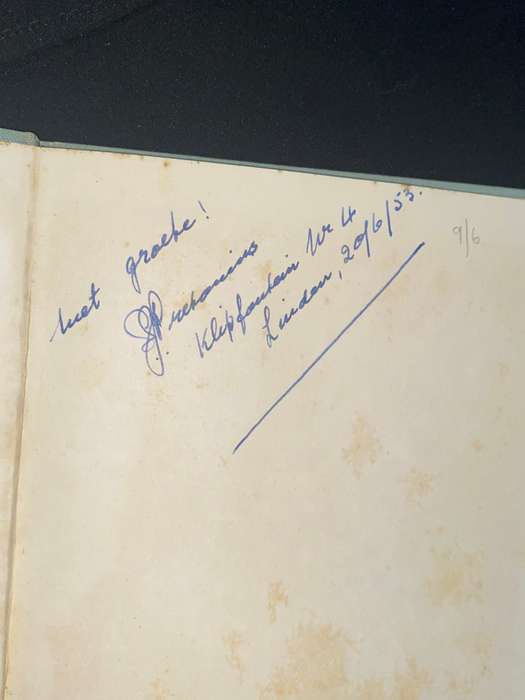 met groete!
Pretorius
Klipfontein Nr 4
Linden, 20/6/53.
9/6